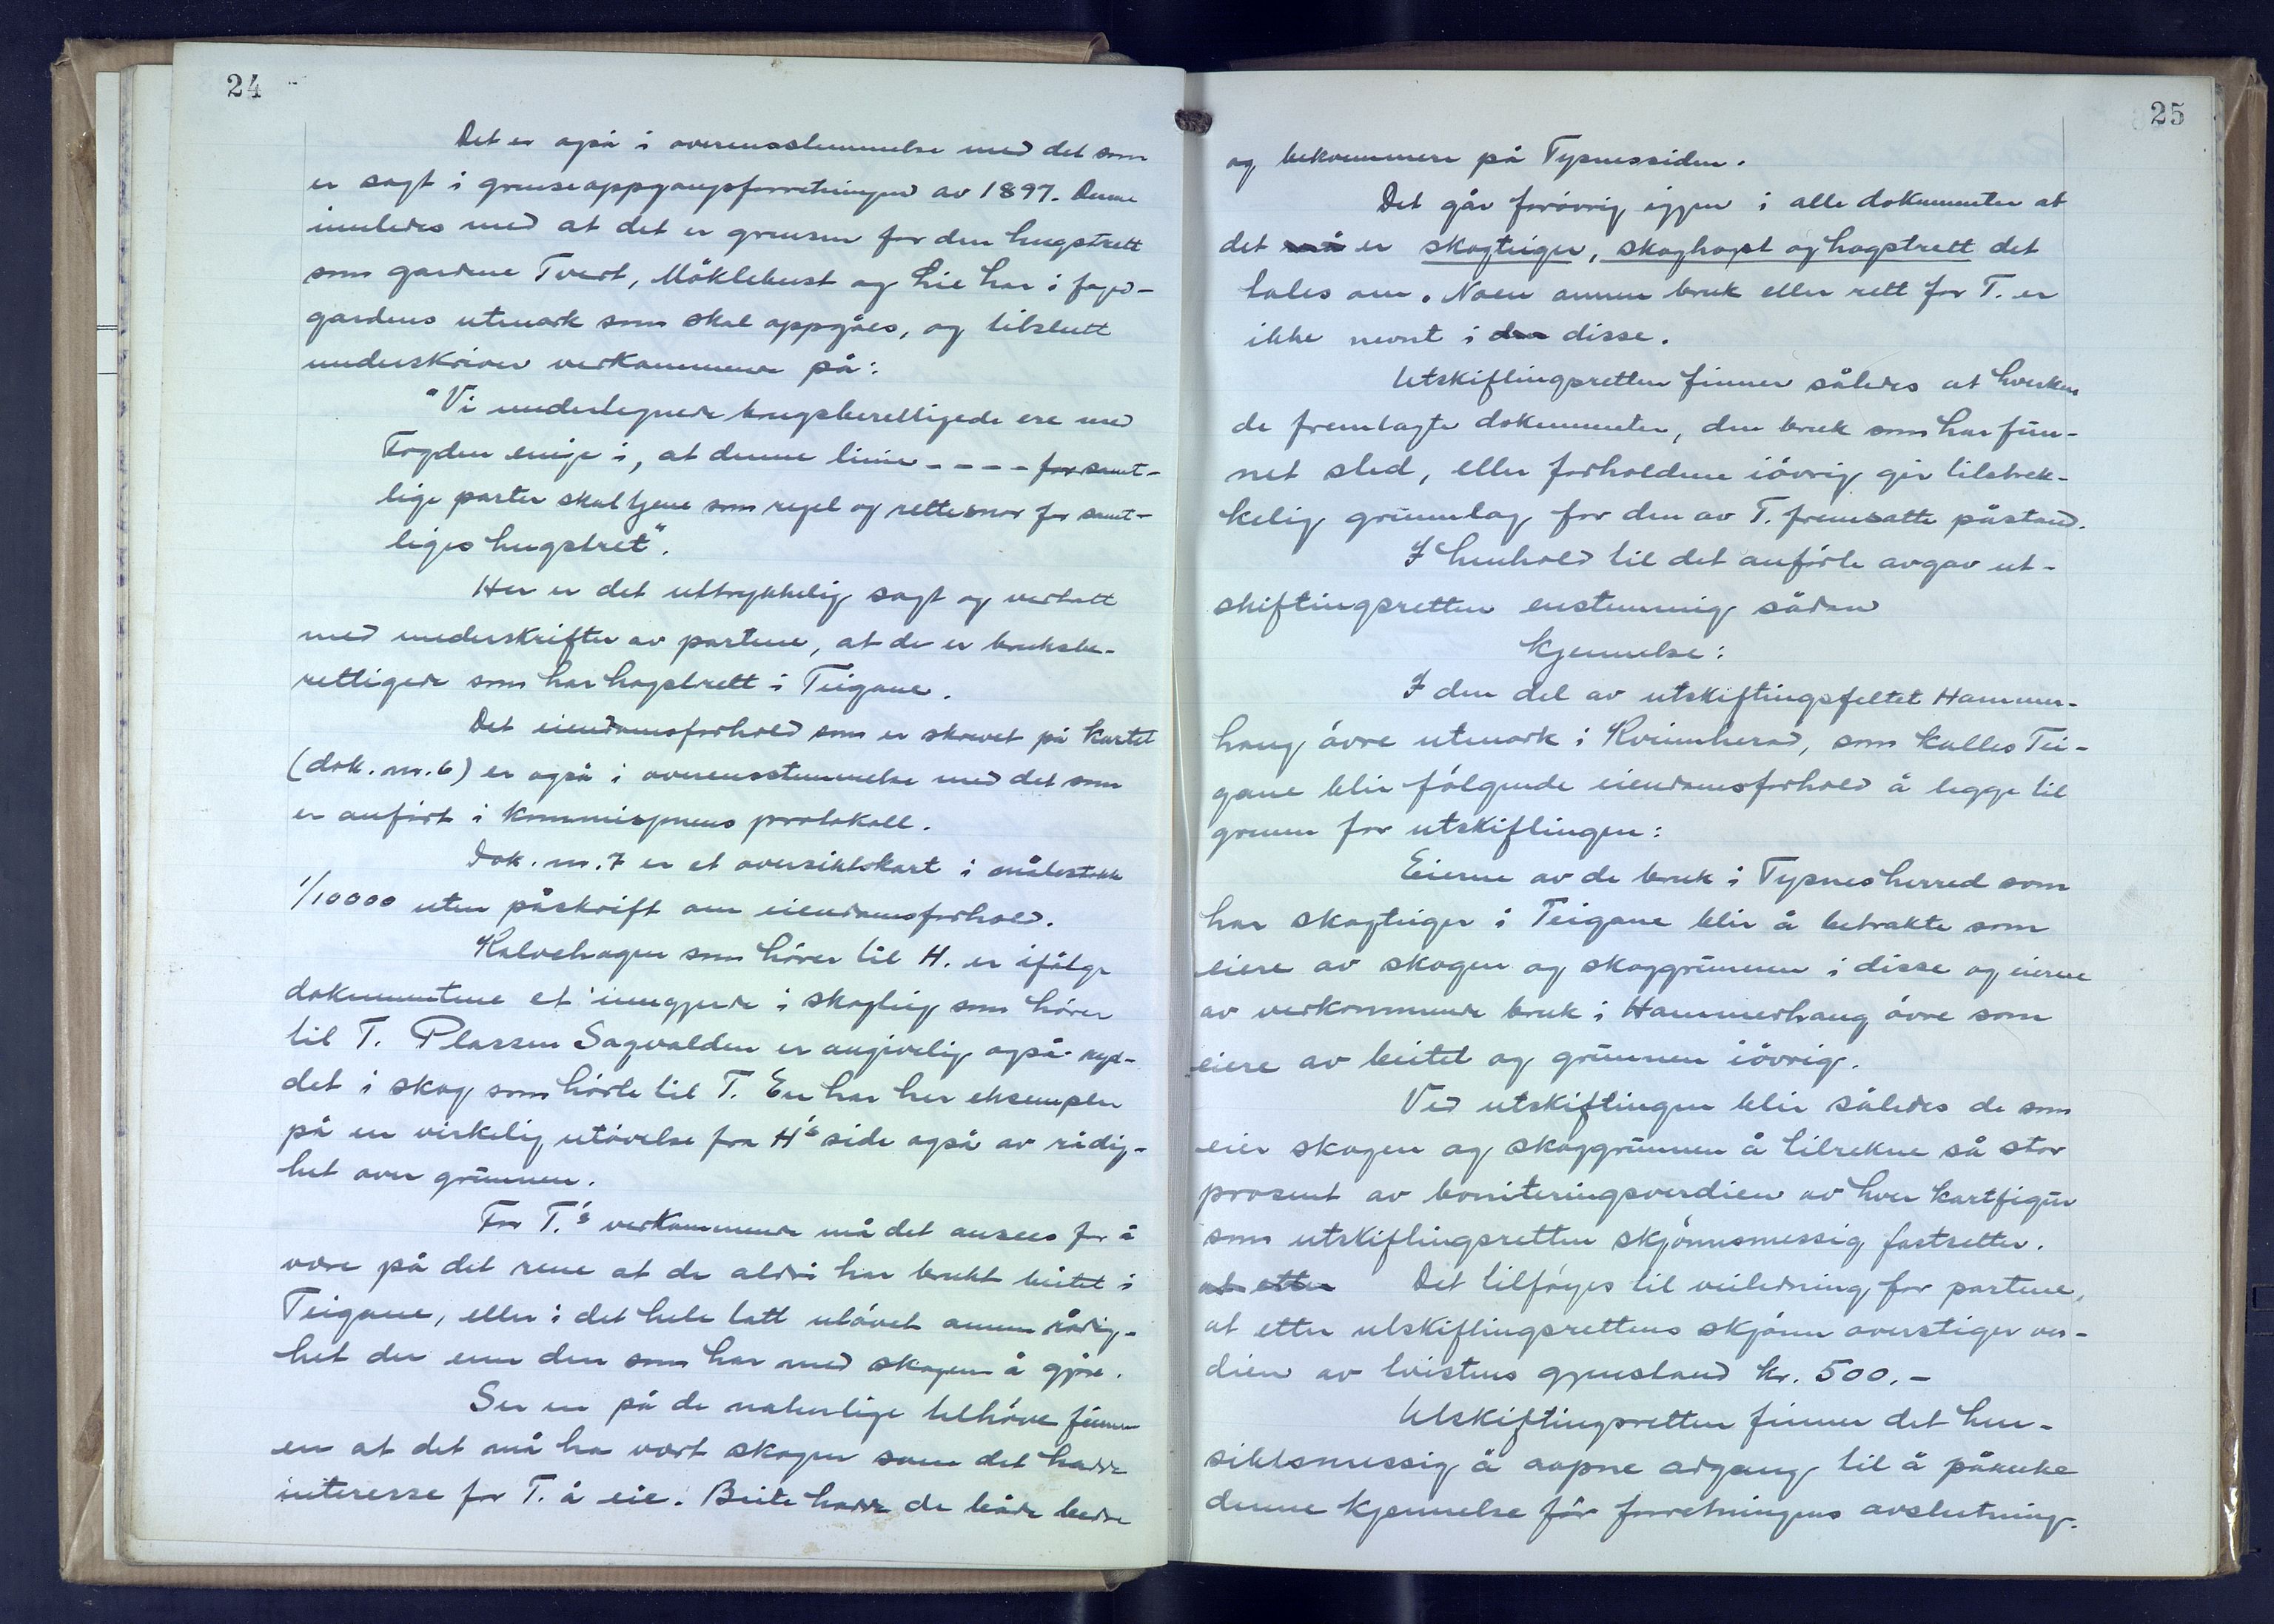 24
Det er også i overensstemmelse med det som
er sagt i grenseoppgangsforretningen av 1897. Denne
innledes med at det er grensen for den hugstrett
som gardene Tvert, Möklebust og Lie har i fogd-
gardens utmark som skal oppgåes, og tilslutt
underskriver vedkommende på:
"Vi undertegnede brugsberettigede ere med
Fogden enige i, at denne linie - - - - for samt-
lige parter skal tjene som regel og rettesnor for samt-
liges hugstret".
Her er det uttrykkelig sagt og vedtatt
med underskrifter av partene, at de er bruksbe-
rettigede som har hogstrett i Teigane.
Det eiendomsforhold som er skrevet på kartet
(dok. nr. 6) er også i overensstemmelse med det som
er anfört i kommisjonens protokoll.
Dok. nr. 7 er et oversiktskart i målestokk
1/10000 uten påskrift om eiendomsforhold.
Kalvehagen som hörer til H. er ifölge
dokumentene et inngjerde i skogteig som hörer
til T. Plassen Sagvolden er angivelig også ryd-
det i skog som hörte til T. En har her eksempler
på en virkelig utövelse fra H's side også av rådig-
het over grunnen.
For T.'s vedkommende må det ansees for å
være på det rene at de aldri har brukt beitet i
Teigane, eller i det hele tatt utövet annen rådig-
het der enn den som har med skogen å gjöre.
Ser en på de naturlige tilhöve finner
en at det må ha vært skogen som det hadde
interesse for T. å eie. Beite hadde de både bedre
25
og bekvemmere på Tysnessiden.
Det går forövrig igjen i alle dokumenter at
det må er skogteiger, skoghogst og hogstrett det
tales om. Noen annen bruk eller rett for T. er
ikke nevnt i den disse.
Utskiftingsretten finner således at hverken
de fremlagte dokumenter, den bruk som har fun-
net sted, eller forholdene iövrig gir tilstrek-
kelig grunnlag for den av T. fremsatte påstand.
I henhold til det anförte avgav ut-
skiftingsretten enstemmig sådan
Kjennelse:
I den del av utskiftingsfeltet Hammer-
haug övre utmark i Kvinnherad, som kalles Tei-
gane blir fölgende eiendomsforhold å legge til
grunn for utskiftingen:
Eierne av de bruk i Tysnes herred som
har skogteiger i Teigane blir å betrakte som
eiere av skogen og skoggrunnen i disse og eierne
av vedkommende bruk i Hammerhaug övre som
eiere av beitet og grunnen iövrig.
Ved utskiftingen blir således de som
eier skogen og skoggrunnen å tilrekne så stor
prosent av boniteringsverdien av hver kartfigur
som utskiftingsretten skjönnsmessig fastsetter.
at etter Det tilföyes til veiledning for partene,
at etter utskiftingsrettens skjönn overstiger ver-
dien av tvistens gjenstand kr. 500.-
Utskiftingsretten finner det hen-
siktsmessig å aapne adgang til å påanke
denne kjennelse för forretningens avslutning.